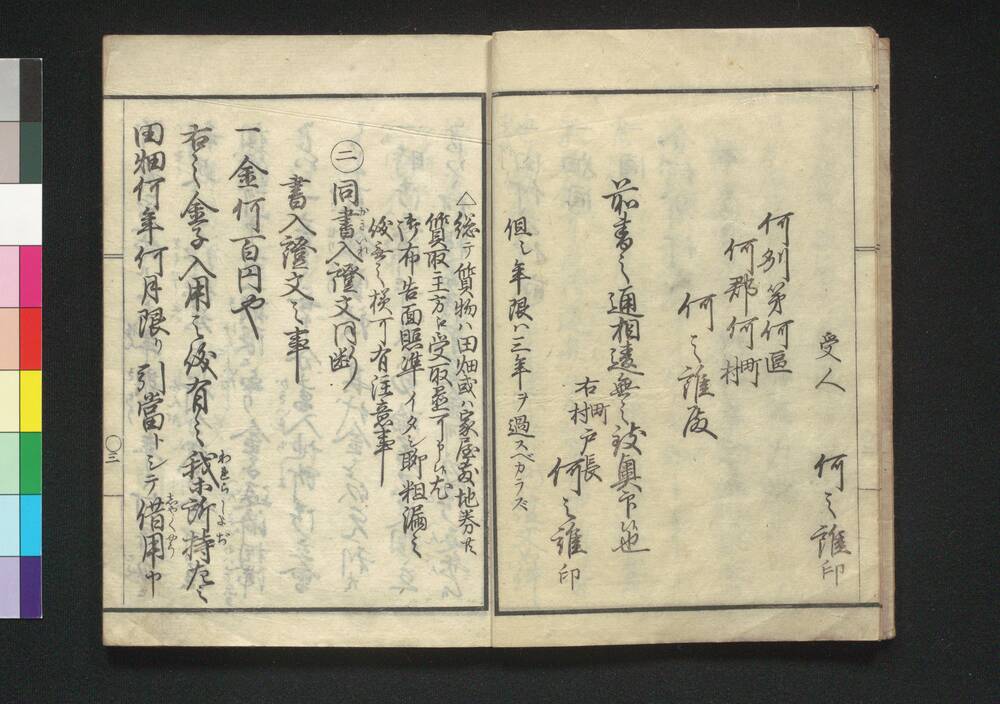 受人　何之誰印
何州第何區
何郡何町村
何之誰殿
前書之通相違無之致奥印候也
右町村戸長　何之誰印
但シ年限ハ三年ヲ過スベカラズ
△総テ質物ハ田畑或ハ家屋敷地券共
質取主方江受取置可申候尤
御布告面照準イタシ聊粗漏之
儀無之様可有注意事
㊁同書入證文
書入證文之事
一金何百円也
右之金子入用ニ付有之我等所持左之
田畑何年何月限リ引當トシテ借用申
〇三